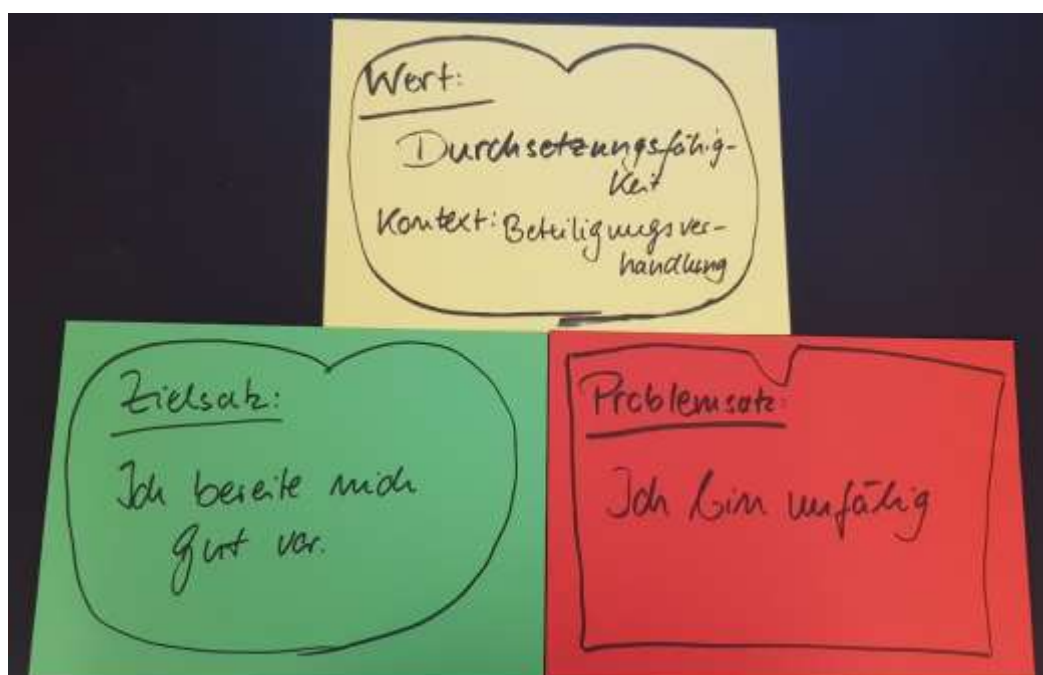 Wert:
Durchsetzungsfähig-
keit
Kontext: Beteiligungsver-
handlung
Zielsatz:
Ich bereite mich
gut vor.
Problemsatz:
Ich bin unfähig